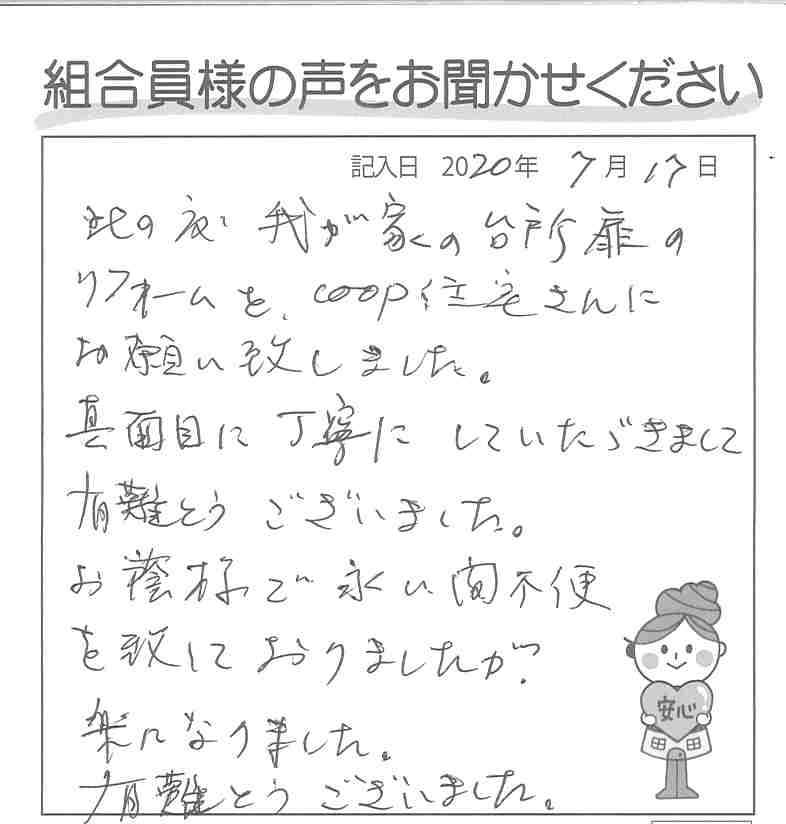 組合員様の声をお聞かせください
記入日 2020年 7月17日
此の度 我が家の台所扉の
リフォームを、coop住宅さんに
お願い致しました。
真面目に丁寧に していたゞきまして
有難とう ございました。
お蔭様で 永い間不便
を致して おりましたが、
楽になりました。
有難とう ございました。
安心